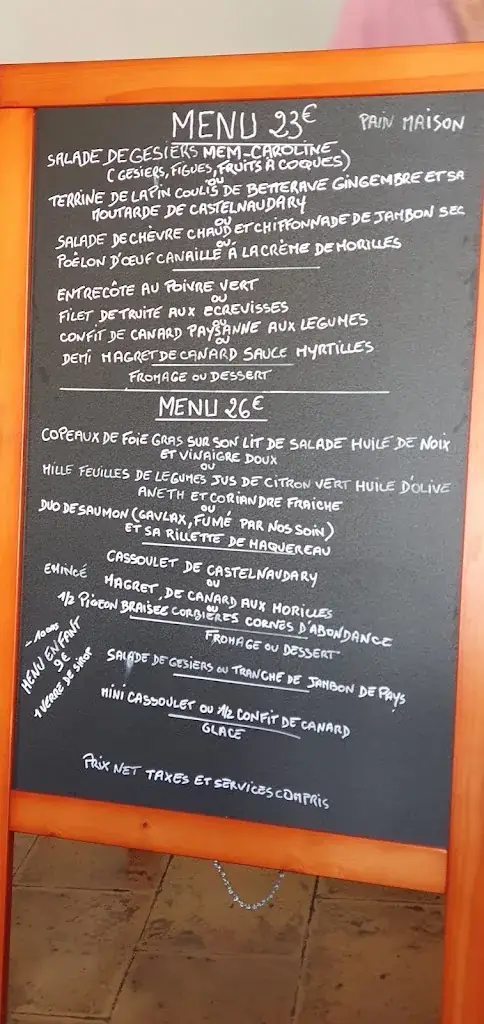 MENU 23€
PAIN MAISON
SALADE DE GESIERS MEM-CAROLINE
(GESIERS, FIGUES, FRUITS A COQUES)
OU
TERRINE DE LAPIN COULIS DE BETTERAVE GINGEMBRE ET SA
MOUTARDE DE CASTELNAUDARY
OU
SALADE DE CHÈVRE CHAUD ET CHIFFONNADE DE JAMBON SEC
OU
POÊLON D'ŒUF CANAILLE A LA CRÈME DE MORILLES
ENTRECÔTE AU POIVRE VERT
OU
FILET DE TRUITE AUX ECREVISSES
OU
CONFIT DE CANARD PAYSANNE AUX LEGUMES
OU
DEMI MAGRET DE CANARD SAUCE MYRTILLES
FROMAGE OU DESSERT
MENU 26€
COPEAUX DE FOIE GRAS SUR SON LIT DE SALADE HUILE DE NOIX
ET VINAIGRE DOUX
OU
MILLE FEUILLES DE LEGUMES JUS DE CITRON VERT HUILE D'OLIVE
ANETH ET CORIANDRE FRAICHE
OU
DUO DE SAUMON (GAVLAX, FUMÉ PAR NOS SOIN)
ET SA RILLETTE DE MAQUEREAU
CASSOULET DE CASTELNAUDARY
OU
EMINCÉ MAGRET DE CANARD AUX MORILLES
OU
1/2 PIGEON BRAISEE CORBIÈRES CORNES D'ABONDANCE
FROMAGE OU DESSERT
- 10 ans
MENU ENFANT
9€
1 VERRE DE SIROP
SALADE DE GESIERS OU TRANCHE DE JAMBON DE PAYS
MINI CASSOULET OU 1/2 CONFIT DE CANARD
GLACE
PRIX NET TAXES ET SERVICES COMPRIS